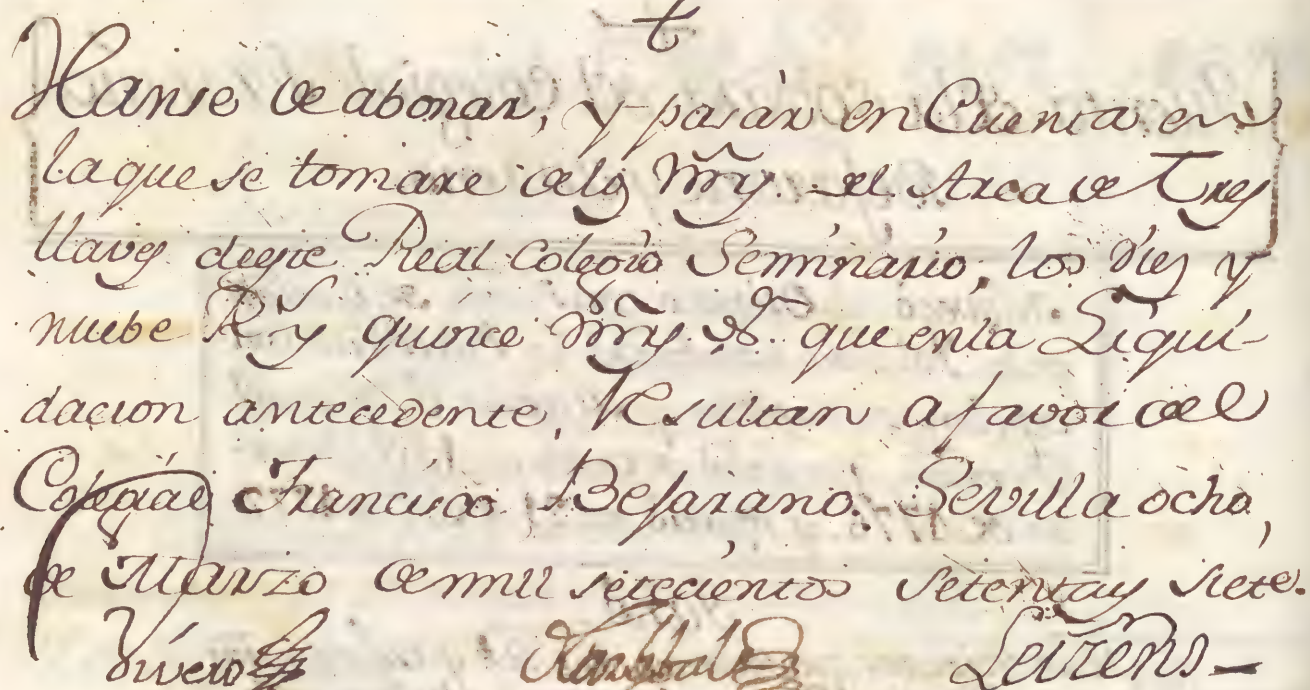 t
Hanse de abonar, y pasar en Cuenta en
la que se tomare delos mrs. del Arca de Tres
llaves deeste Real Colegio Seminario, los diez y
nuebe Rs. y quince mrs. vn. que enla Liqui-
dacion antecedente, Resultan afavor del
Colegial Francisco Bejarano. Sevilla ocho,
de Marzo demil setecientos setentay siete.
Vivero Leirens